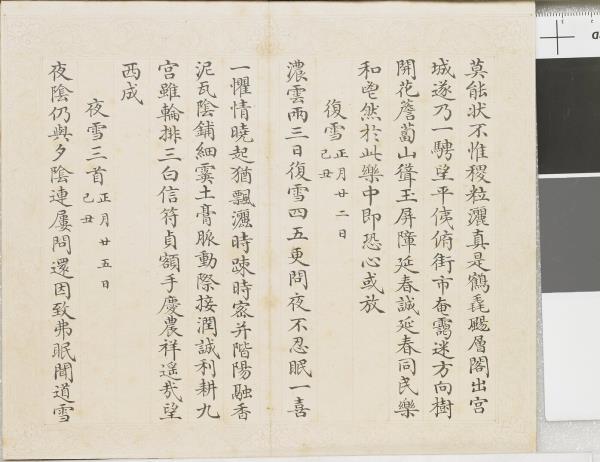 莫能狀不惟稷粒灑真是鶴毳颺層閣出宮
城遂乃一騁望平俯街市奩靄迷方向樹
開花簷蔔山聳玉屏障延春誠延春同民樂
和邕然於此樂中即恐心或放
復雪正月廿二日己丑
濃雲兩三日復雪四五更問夜不忍眠一喜
一懼情曉起猶飄灑時疎時密并階陽融香
泥瓦陰鋪細霙土膏脈動際接潤誠利耕九
宮雖輪排三白信符貞額手慶農祥遥哉望
西成
夜雪三首正月廿五日己丑
夜陰仍與夕陰連屢問還因致弗眠聞道雪